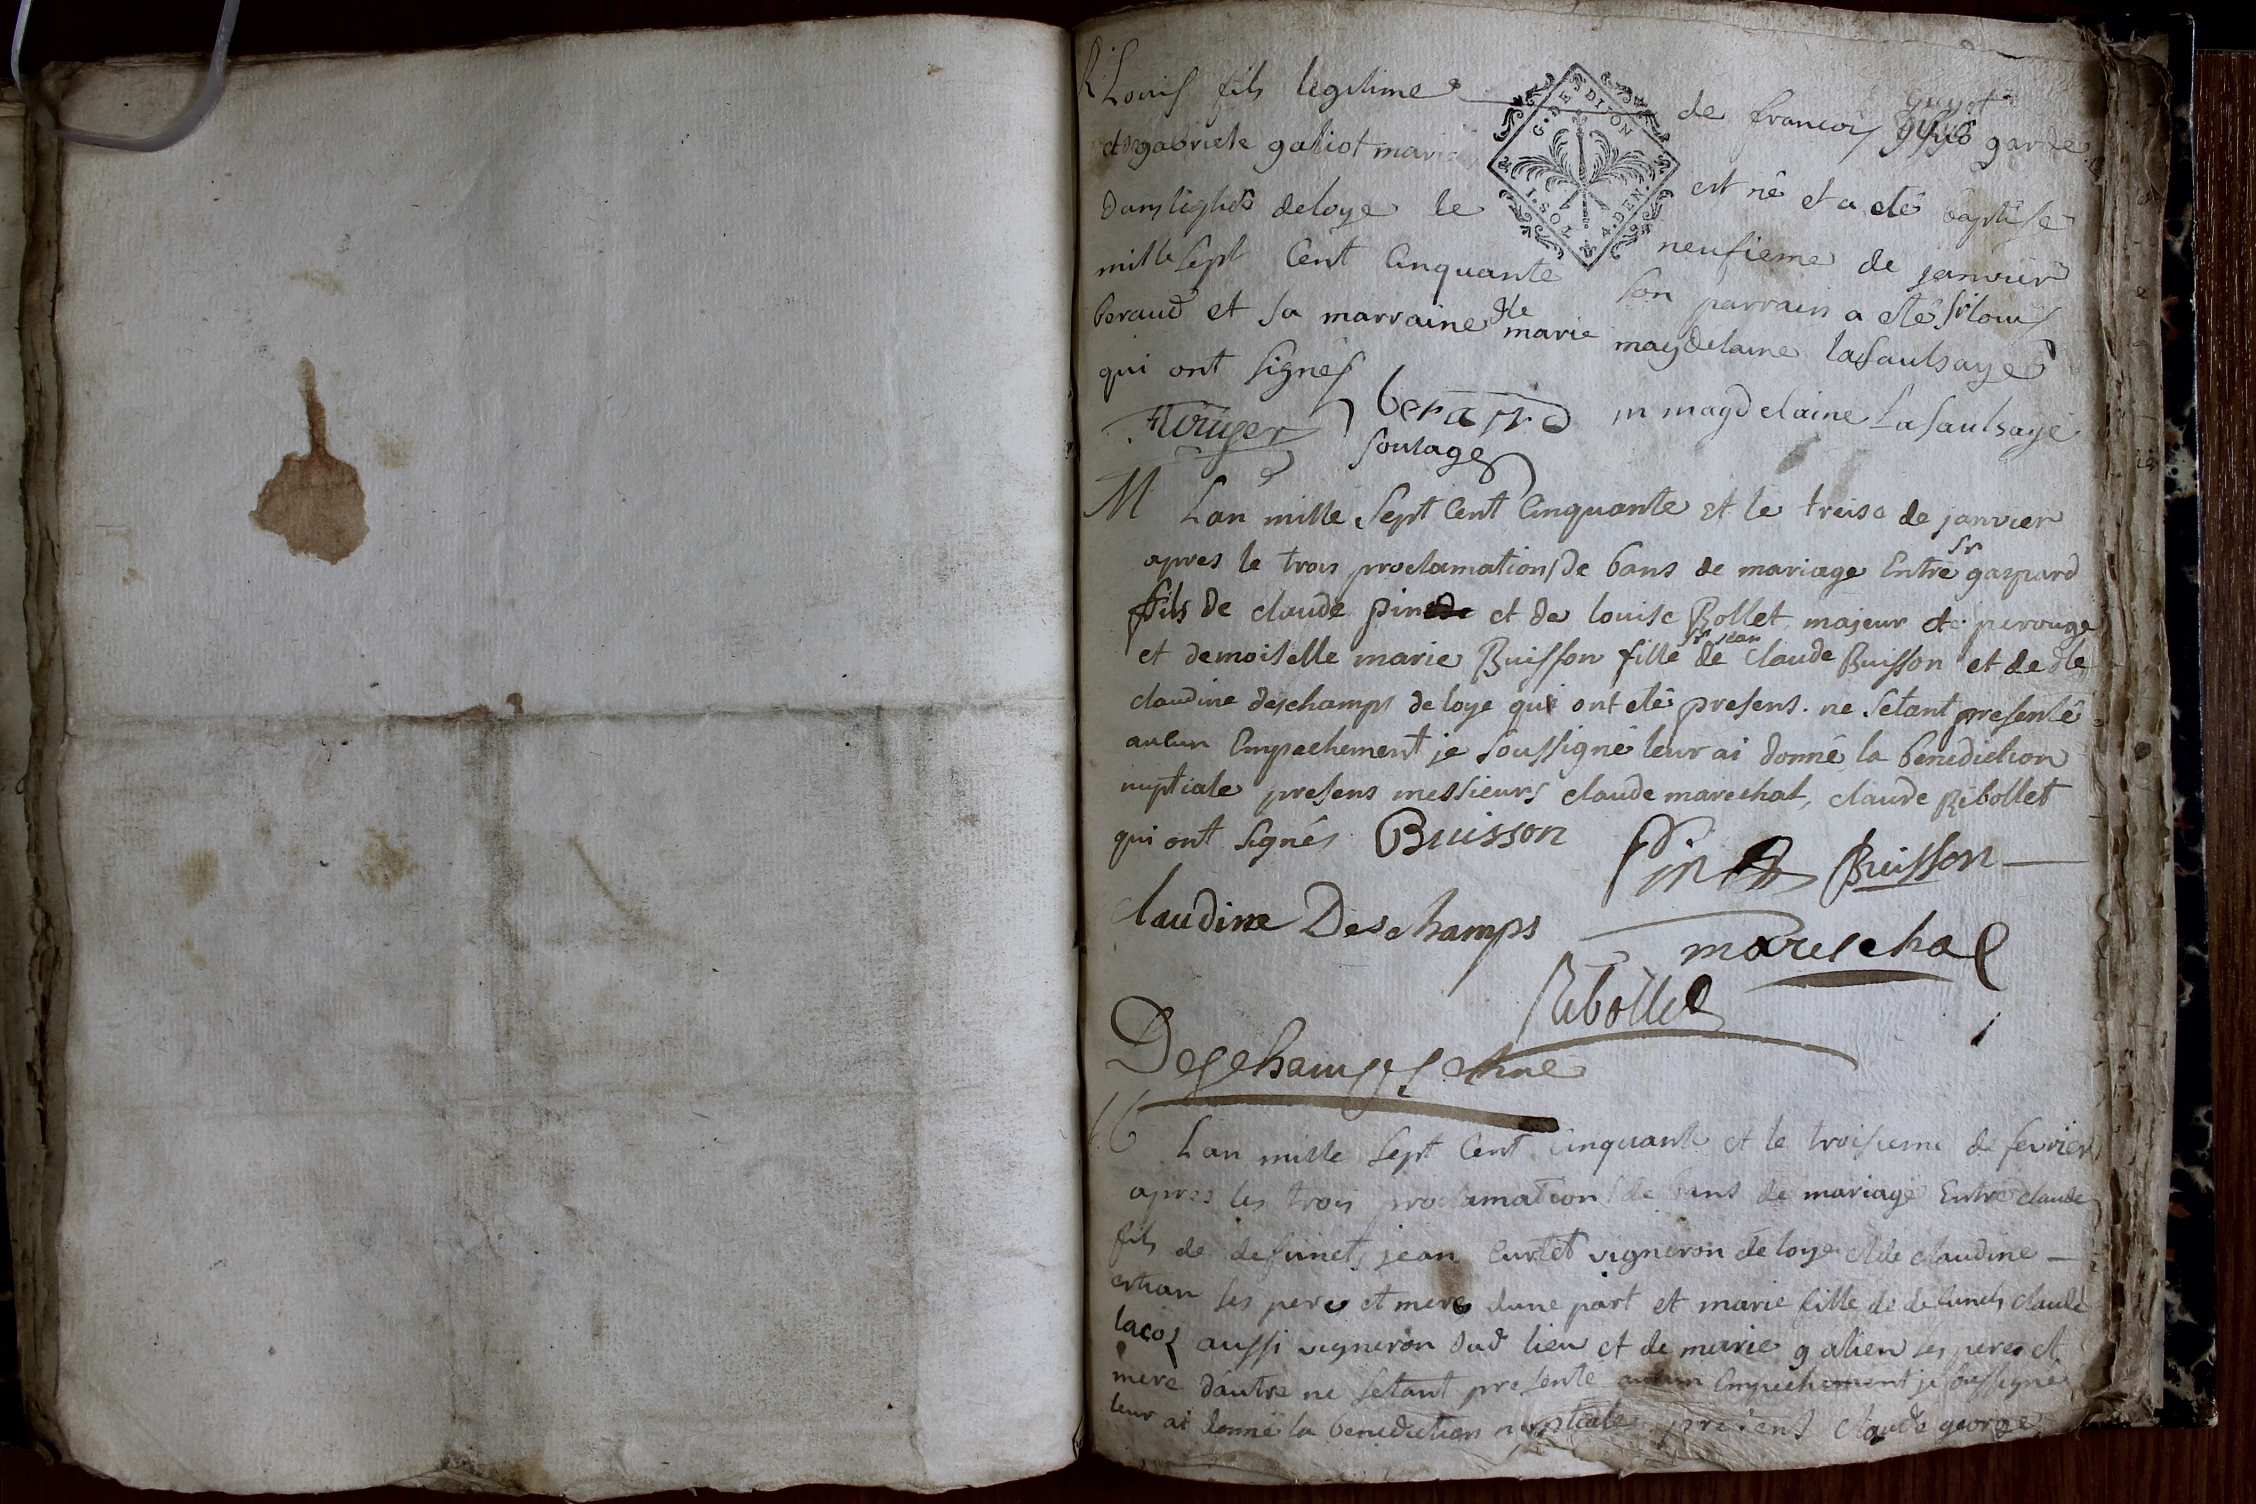 Louis fils legitime de francois Guyot garde
et de gabriele galiot maries
dans leglise deloye le est né et a eté baptisé
mille sept Cent Cinquante neufieme de janvier
beraud et sa marraine dlle marie son parrain a eté sr louis
qui ont signés magdelaine lasaulsaye
beraud m magdelaine Lasaulsaye
soulages
M Lan mille sept Cent Cinquante et le treise de janvier
apres le trois proclamations de bans de mariage Entre sr gaspard
fils de claude pine et de louise Bollet majeur de perouge
et demoiselle marie Buisson fille de sr jean claude Buisson et de dlle
claudine deschamps de loye qui ont eté presens. ne setant presenté
aucun Empechement je soussigné leur ai donné la benediction
nuptiale presens messieurs claude marechal, claude Ribollet
qui ont signés Buisson
Buisson
claudine Deschamps
mareschal
Ribollet
Deschamps
Lan mille sept Cent Cinquante et le troisieme de fevrier
apres les trois proclamations de bans de mariage Entre claude
fils de defunets jean Curtet vigneron de loye et de claudine
ses pere et mere dune part et marie fille de defuncts claude
lacos aussi vigneron dud lieu et de marie galien ses pere et
mere dautre ne setant presenté aucun Empechement je soussigné
leur ai donné la benediction nuptiale presens claude george
G. DE DIJON